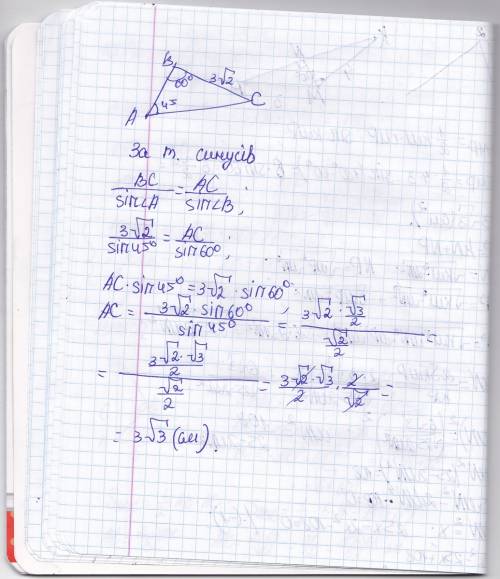 B
3√2
60°
45
A
C
За т. синусів
BC/sin∠A = AC/sin∠B,
3√2/sin45° = AC/sin60°;
AC·sin45° = 3√2·sin60°;
AC = 3√2·sin60°/sin45° = (3√2·√3/2)/(√2/2) =
= (3√2·√3/2)/(√2/2) = 3√2·√3/2 · 2/√2 =
= 3√3 (см).